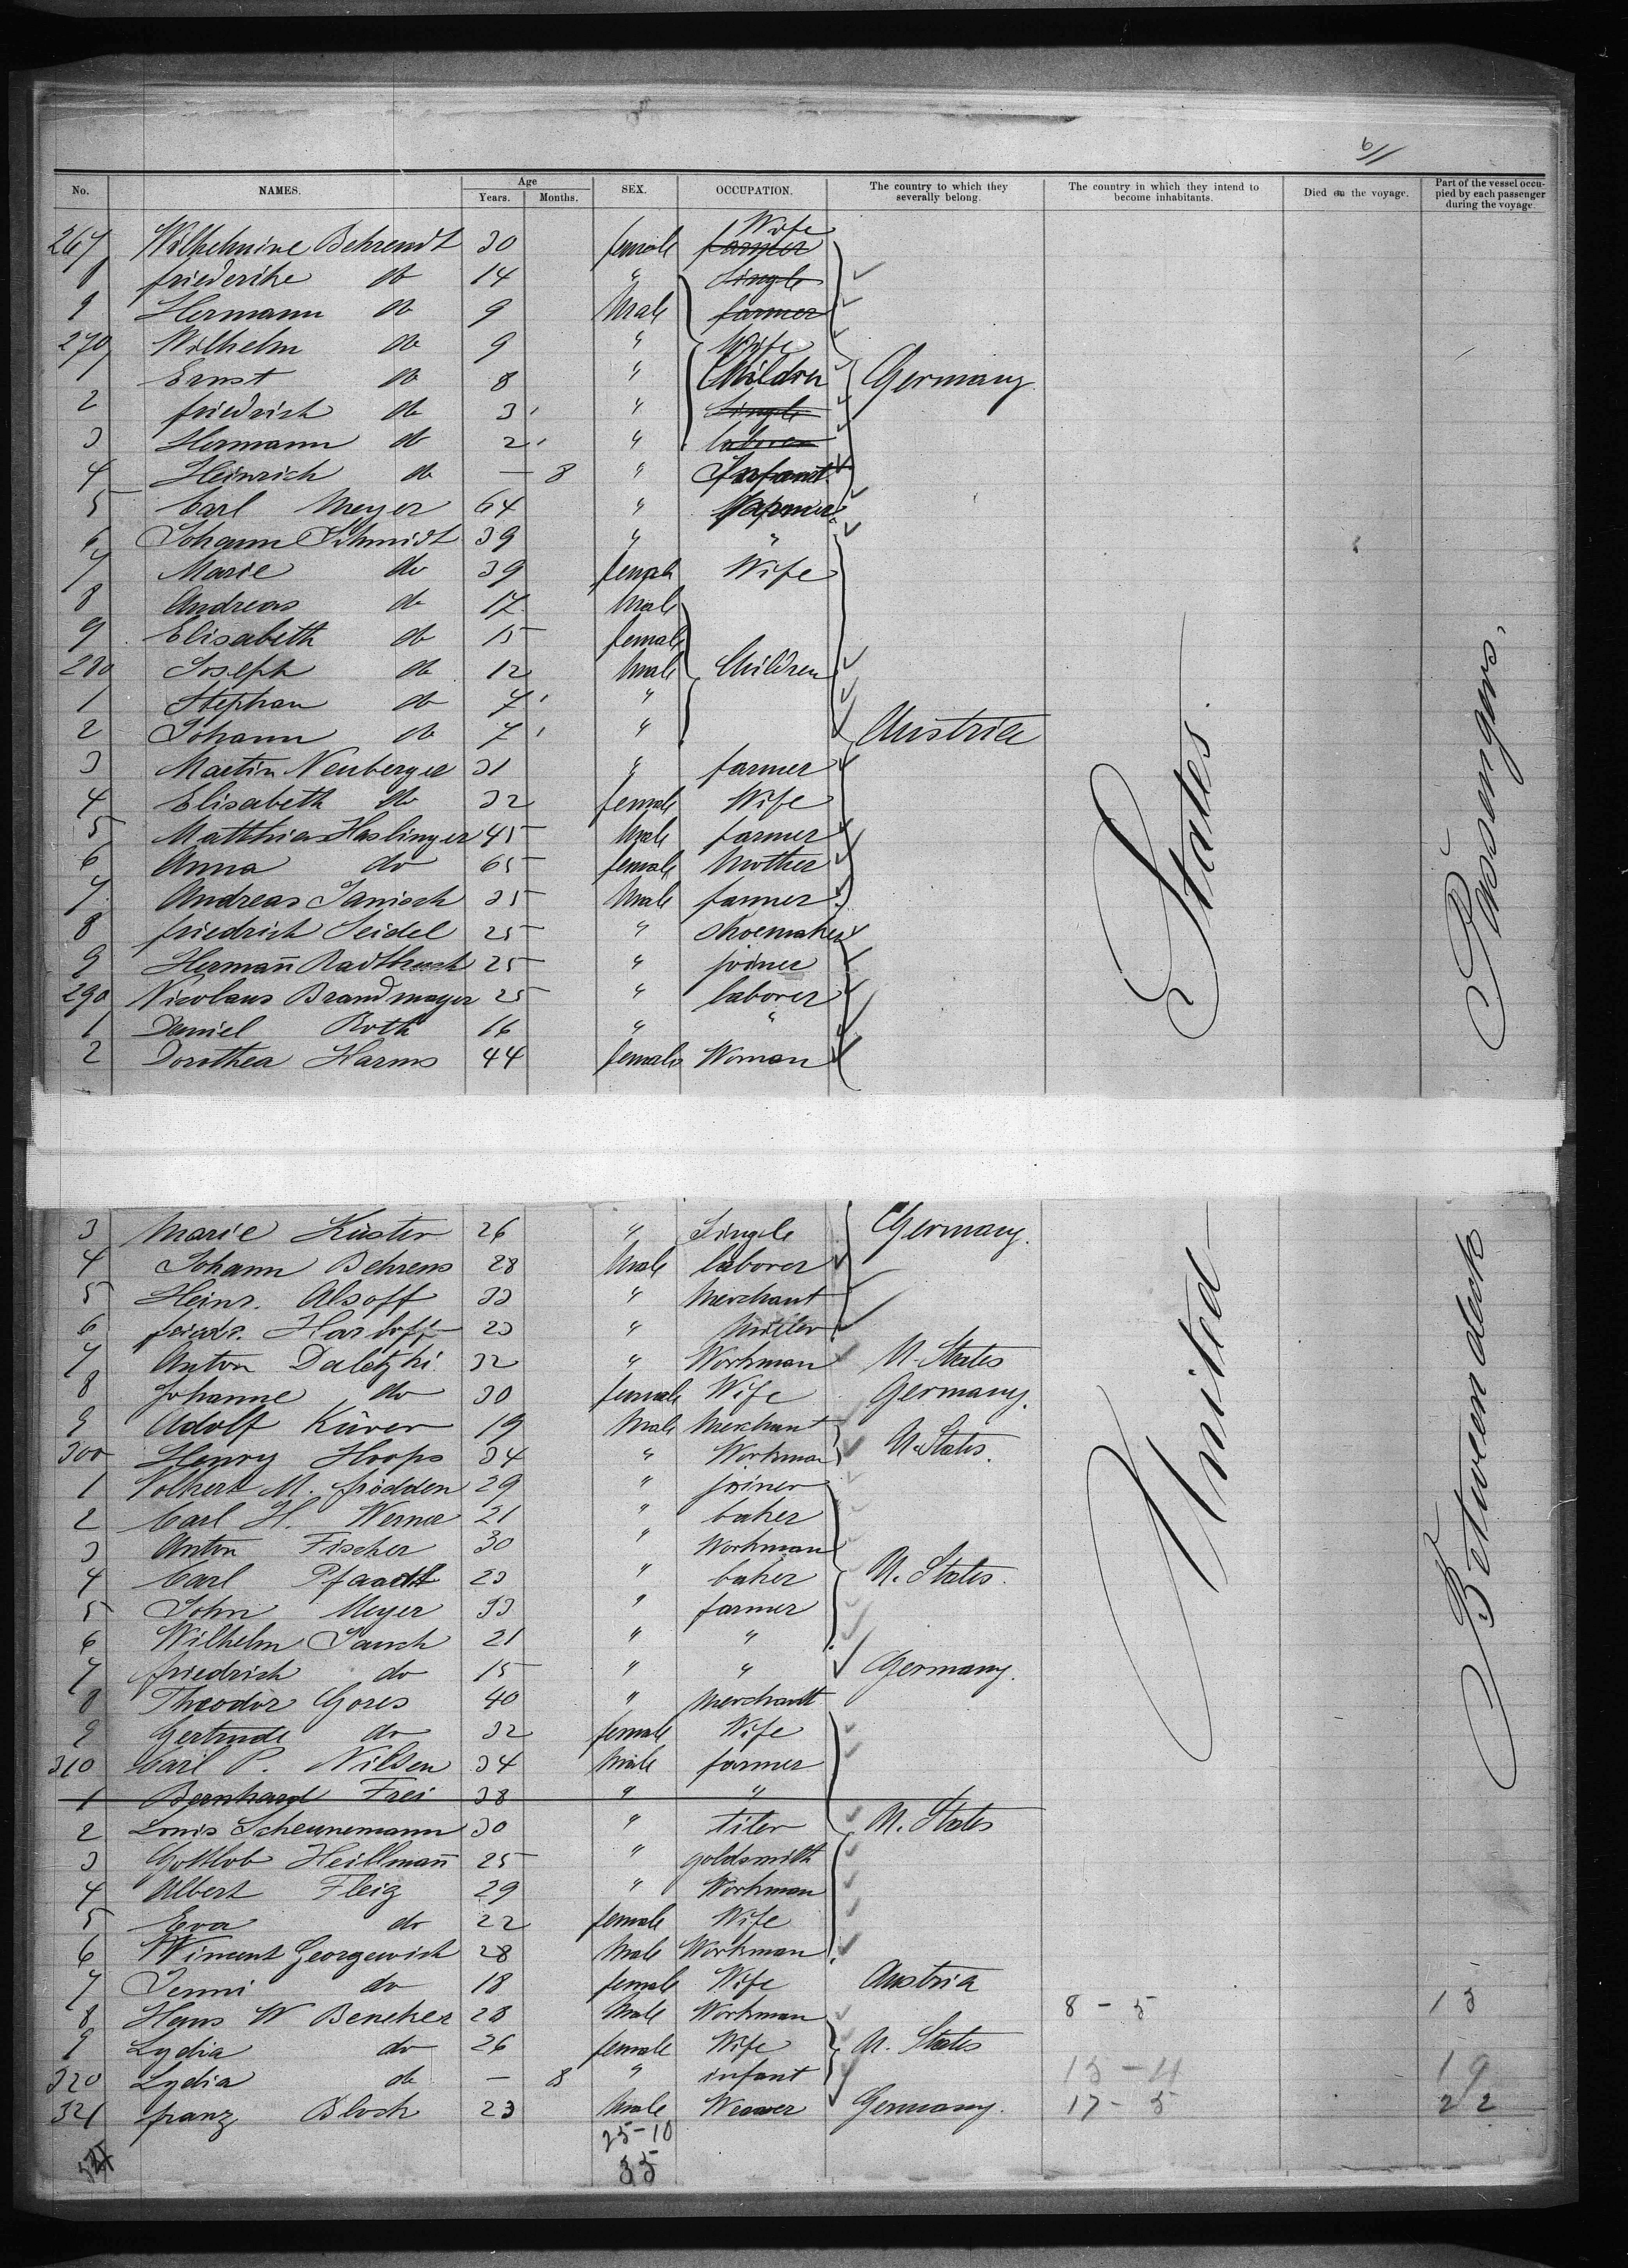 6/11
No. NAMES. Age Years. Months. SEX. OCCUPATION. The country to which they severally belong. The country in which they intend to become inhabitants. Died on the voyage. Part of the vessel occupied by each passenger during the voyage.
Wife
267 Wilhelmine Behrendt 30 female farmer
8 friederike do 14 " Single
9 Hermann do 9 Male farmer
270 Wilhelm do 9 " Wife
1 Ernst do 8 " Children Germany
2 friedrich do 3 " Single
3 Hermann do 2 " laborer
4 Heinrich do — 8 " Infant
5 Carl Meyer 64 " farmer
6 Johann Schmidt 39 " "
7 Marie do 39 female Wife
8 Andreas do 17 Male
9 Elisabeth do 15 female
280 Joseph do 12 Male Children
1 Stephan do 7 "
2 Johann do 7 " Austria
3 Martin Neuberger 31 " farmer
4 Elisabeth do 32 female Wife
5 Matthias Haslinger 45 Male farmer
6 Anna do 65 female Mother
7 Andreas Janisch 35 Male farmer
8 friedrich Seidel 25 " shoemaker
9 Hermann 25 " joiner
290 Nicolaus Brandmayer 25 " laborer
1 Daniel Roth 16 " "
2 Dorothea Harms 44 female Woman
3 Marie Küster 26 " Single Germany.
4 Johann Behrens 28 Male laborer
5 Heinr. Alsoff 33 " Merchant
6 friedr. Harloff 23 " Miller
7 Anton Daletzki 32 " Workman U. States
8 Johanne do 30 female Wife Germany.
9 Adolf Küver 19 Male Merchant
300 Henry Hoops 34 " Workman U. States.
1 Volkert M. frödden 29 " joiner
2 Carl H. Werner 21 " baker
3 Anton Fischer 30 " Workman
4 Carl Pfaadt 23 " baker U. States.
5 John Meyer 33 " farmer
6 Wilhelm Jauch 21 " "
7 friedrich do 15 " " Germany.
8 Theodor Gores 40 " Merchant
9 Gertrude do 32 female Wife
310 Carl P. Nilsen 34 Male farmer
1 Bernhard Frei 38 " "
2 Louis Scheunemann 30 " tiler U. States
3 Gottlob Heillmann 25 " goldsmith
4 Albert Fleig 29 " Workman
5 Eva do 22 female Wife
6 Wincent Georgewich 28 Male Workman
7 Jenni do 18 female Wife Austria
8 Hans W Beneker 28 Male Workman 8 - 5 13
9 Lydia do 26 female Wife U. States
320 Lydia do — 8 " infant 15 - 4 19
321 franz Bloch 23 Male Weaver Germany. 17 - 5 22
25-10
35
United States.
Between deck Passengers.